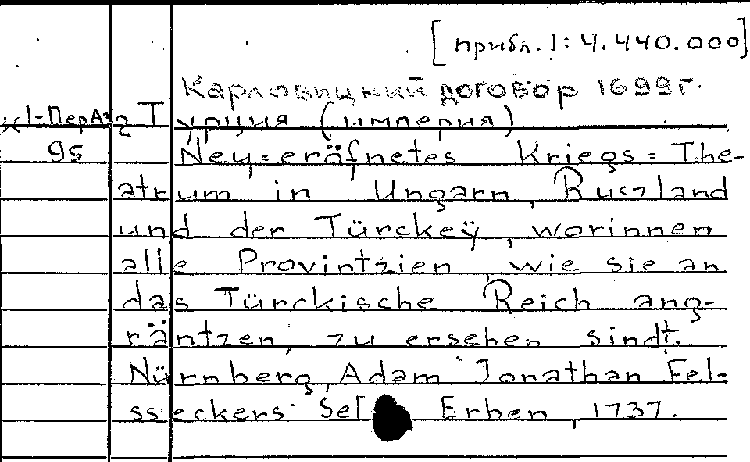 [прибл. 1:4.440.000]
Карловицкий договор 1699г.
Турция (империя)
95 Ney=eräfnetes Kriegs=The-
atrum in Ungarn, Ruszland
und der Türckeÿ, worinnen
alle Provintzien, wie sie an
das Türckische Reich ang-
räntzen, zu ersehen sindt.
Nürnberg, Adam Jonathan Fel-
sseckers Sel Erben, 1737.